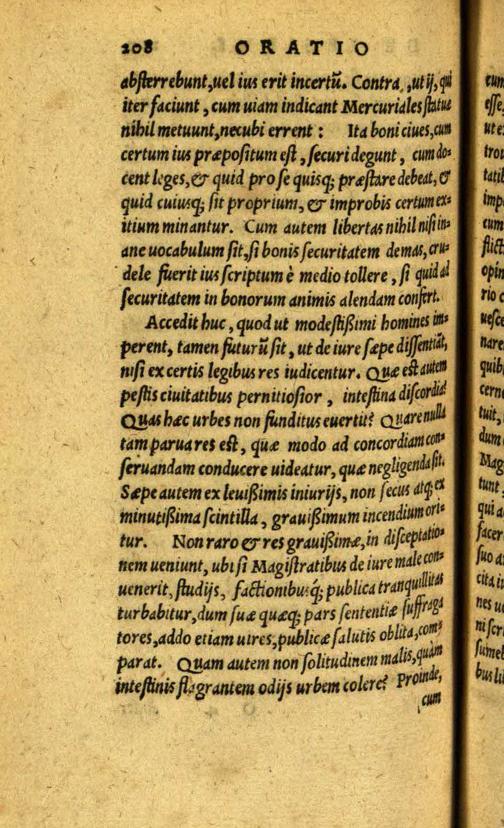 208 ORATIO
absterrebunt,uel ius erit incertū. Contra, ut ij, qui
iter faciunt, cum uiam indicant Mercuriales statuæ
nihil metuunt,necubi errent : Ita boni ciues,cum
certum ius præpositum est, securi degunt, cum do=
cent leges,& quid pro se quisq; præstare debeat, &
quid cuiusq; sit proprium, & improbis certum ex=
itium minantur. Cum autem libertas nihil nisi in=
ane uocabulum sit,si bonis securitatem demas, cru=
dele fuerit ius scriptum è medio tollere, si quid ad
securitatem in bonorum animis alendam confert.
Accedit huc, quod ut modestißimi homines im=
perent, tamen futurū sit, ut de iure sæpe dissentiāt,
nisi ex certis legibus res iudicentur. Quæ est autem
pestis ciuitatibus pernitiosior, intestina discordia?
Quas hæc urbes non funditus euertit? Quare nulla
tam parua res est, quæ modo ad concordiam con=
seruandam conducere uideatur, quæ negligenda sit.
Sæpe autem ex leuißimis iniurijs, non secus atq; ex
minutißima scintilla, grauißimum incendium ori=
tur. Non raro & res grauißimæ,in disceptatio=
nem ueniunt, ubi si Magistratibus de iure male con=
uenerit, studijs, factionibusq́; publica tranquillitas
turbabitur,dum suæ quæq; pars sententiæ suffraga
tores,addo etiam uires,publicæ salutis oblita,com=
parat. Quam autem non solitudinem malis,quàm
intestinis flagrantem odijs urbem colere? Proinde,
cum